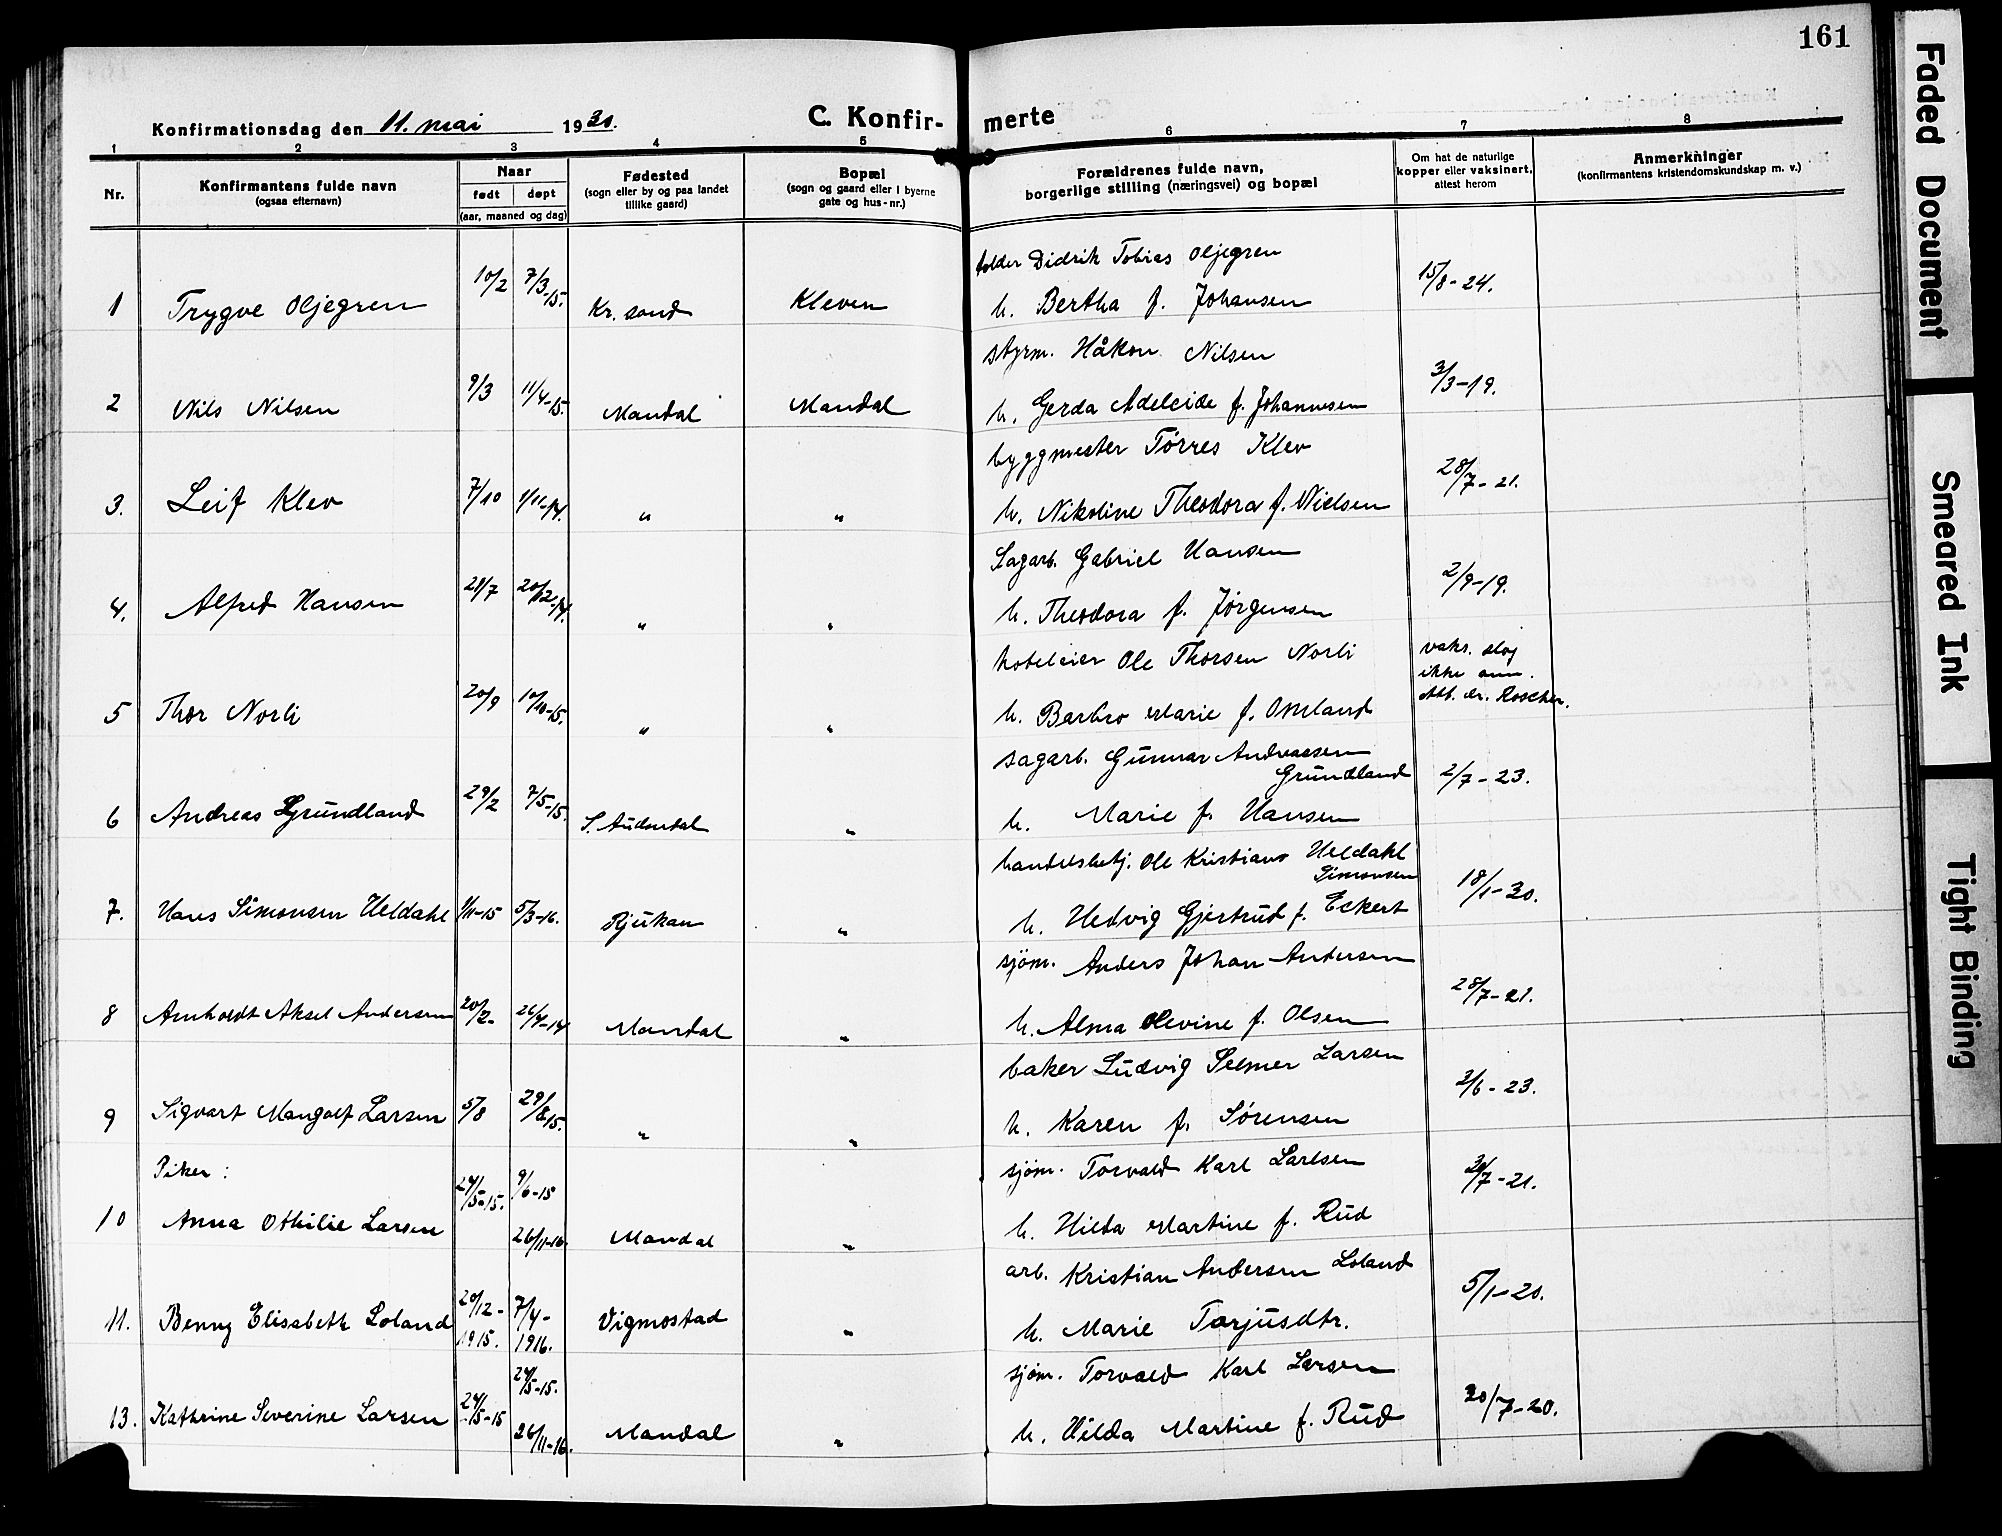 161
Konfirmationsdag den 11. mai 1930.
C. Konfir- merte
1 2 3 4 5 6 7 8
Nr.
Konfirmantens fulde navn
(ogsaa efternavn)
Naar
født døpt
(aar, maaned og dag)
Fødested
(sogn eller by og paa landet
tillike gaard)
Bopæl
(sogn og gaard eller i byerne
gate og hus-nr.)
Forældrenes fulde navn,
borgerlige stilling (næringsvei) og bopæl
Om hat de naturlige
kopper eller vaksinert,
attest herom
Anmerkninger
(konfirmantens kristendomskundskap m. v.)
tolder Didrik Tobias Oljegren
1 Trygve Oljegren 10/2 7/3-15. Kr. sand Kleven h. Bertha f. Johansen 15/8-24.
styrm. Håkon Nilsen
2 Nils Nilsen 9/3 11/4-15. Mandal Mandal h. Gerda Adeleide f. Johannesen 3/3-19.
byggmester Törres Klev
3. Leif Klev 7/10 1/11-14. " " h. Nikoline Theodora f. Nielsen 28/7-21.
Sagarb. Gabriel Hansen
4. Alfred Hansen 21/7 20/12-14. " " h. Theodora f. Jørgensen 2/9-19.
hoteleier Ole Thorsen Norli
5 Thor Norli 20/9 10/10-15. " " h. Barbro Marie f. Omland vaks. slog
ikke ann.
Att. dr. Roscher.
sagarb. Gunnar Andreassen
Grundland
6 Andreas Grundland 29/2 7/5-15. S. Audnedal " h. Marie f. Hansen 2/7-23.
handelsbetj. Ole Kristians Heldahl
Simonsen
7. Hans Simonsen Heldahl 1/11-15 5/3-16. Rjukan " h. Hedvig Gjertrud f. Eckert 18/1-30.
sjöm. Anders Johan Andersen
8 Arnholdt Aksel Andersen 20/2- 26/4-14 Mandal " h. Alma Olevine f. Olsen 28/7-21.
baker Ludvig Selmer Larsen
9 Sigvart Mangolf Larsen 5/8 29/8-15. " " h. Karen f. Sørensen 2/6-23.
Piker:
sjøm. Torvald Karl Larlsen
10 Anna Othilie Larsen 24/5-15. 9/6-15
26/11-16. Mandal " h. Hilda Martine f. Rud 30/7-21.
arb. Kristian Andersen Loland
11. Benny Elisabeth Loland 20/12-
1915. 7/4-
1916. Vigmostad " h. Marie Tarjusdtr. 5/1-20.
sjøm. Torvald Karl Larsen
13. Kathrine Severine Larsen 24/5-15 24/5-15.
26/11-16. Mandal " h. Hilda Martine f. Rud 20/7-20.
Faded Document
Smeared Ink
Tight Binding